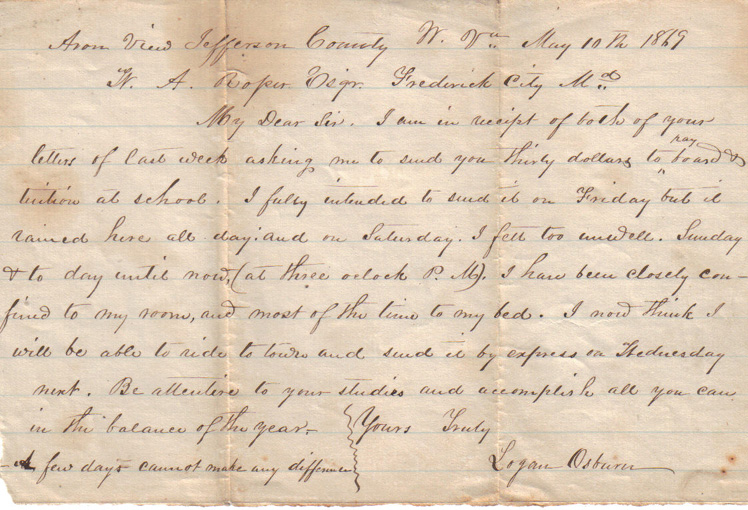 Avon View Jefferson County W. Va May 10th 1869
W. A. Roper Esqr. Frederick City Md
My Dear Sir. I am in receipt of both of your
letters of last week asking me to send you thirty dollars to pay board &
tuition at school. I fully intended to send it on Friday but it
rained here all day: and on Saturday. I felt too unwell. Sunday
& to day until now, (at three oclock P. M). I have been closely con-
fined to my room, and most of the time to my bed. I now think I
will be able to ride to town and send it by express on Wednesday
next. Be attentive to your studies and accomplish all you can
in the balance of the year.-
Yours Truly
- A few days cannot make any difference
Logan Osburn